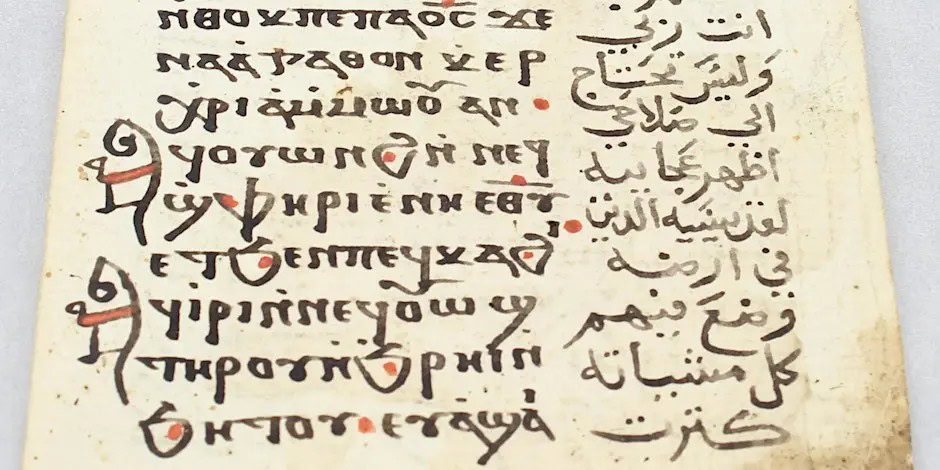 ⲛⲑⲟⲕ ⲡⲉ ⲡⲁϭ̅ⲥ̅ ϫⲉ
ⲛⲁⲁⲅⲁⲑⲟⲛ ⲕⲉⲣ
ⲭⲣⲓⲁ ⲙ̀ⲙⲱⲟⲩ ⲁⲛ
ⲁϥⲟⲩⲱⲛϩ ⲛ̀ⲛⲉϥ
ϣⲫⲏⲣⲓ ⲉⲛⲏⲉⲑ̅ⲩ̅
ⲉⲧϧⲉⲛ ⲡⲉϥⲕⲁϩⲓ
ⲁϥⲓⲣⲓ ⲛ̀ⲛⲉϥⲟⲩⲱϣ
ⲧⲏⲣⲟⲩ ⲛ̀ϧⲣⲏⲓ ⲛ̀
ϧⲏⲧⲟⲩ ⲉⲩⲁϣⲁⲓ
انت ربي
وليس تحتاج
الى صلاحي
اظهر عجايبه
لقديسيه الذين
في ارضه
وضع بينهم
كل مشياته
كثرت